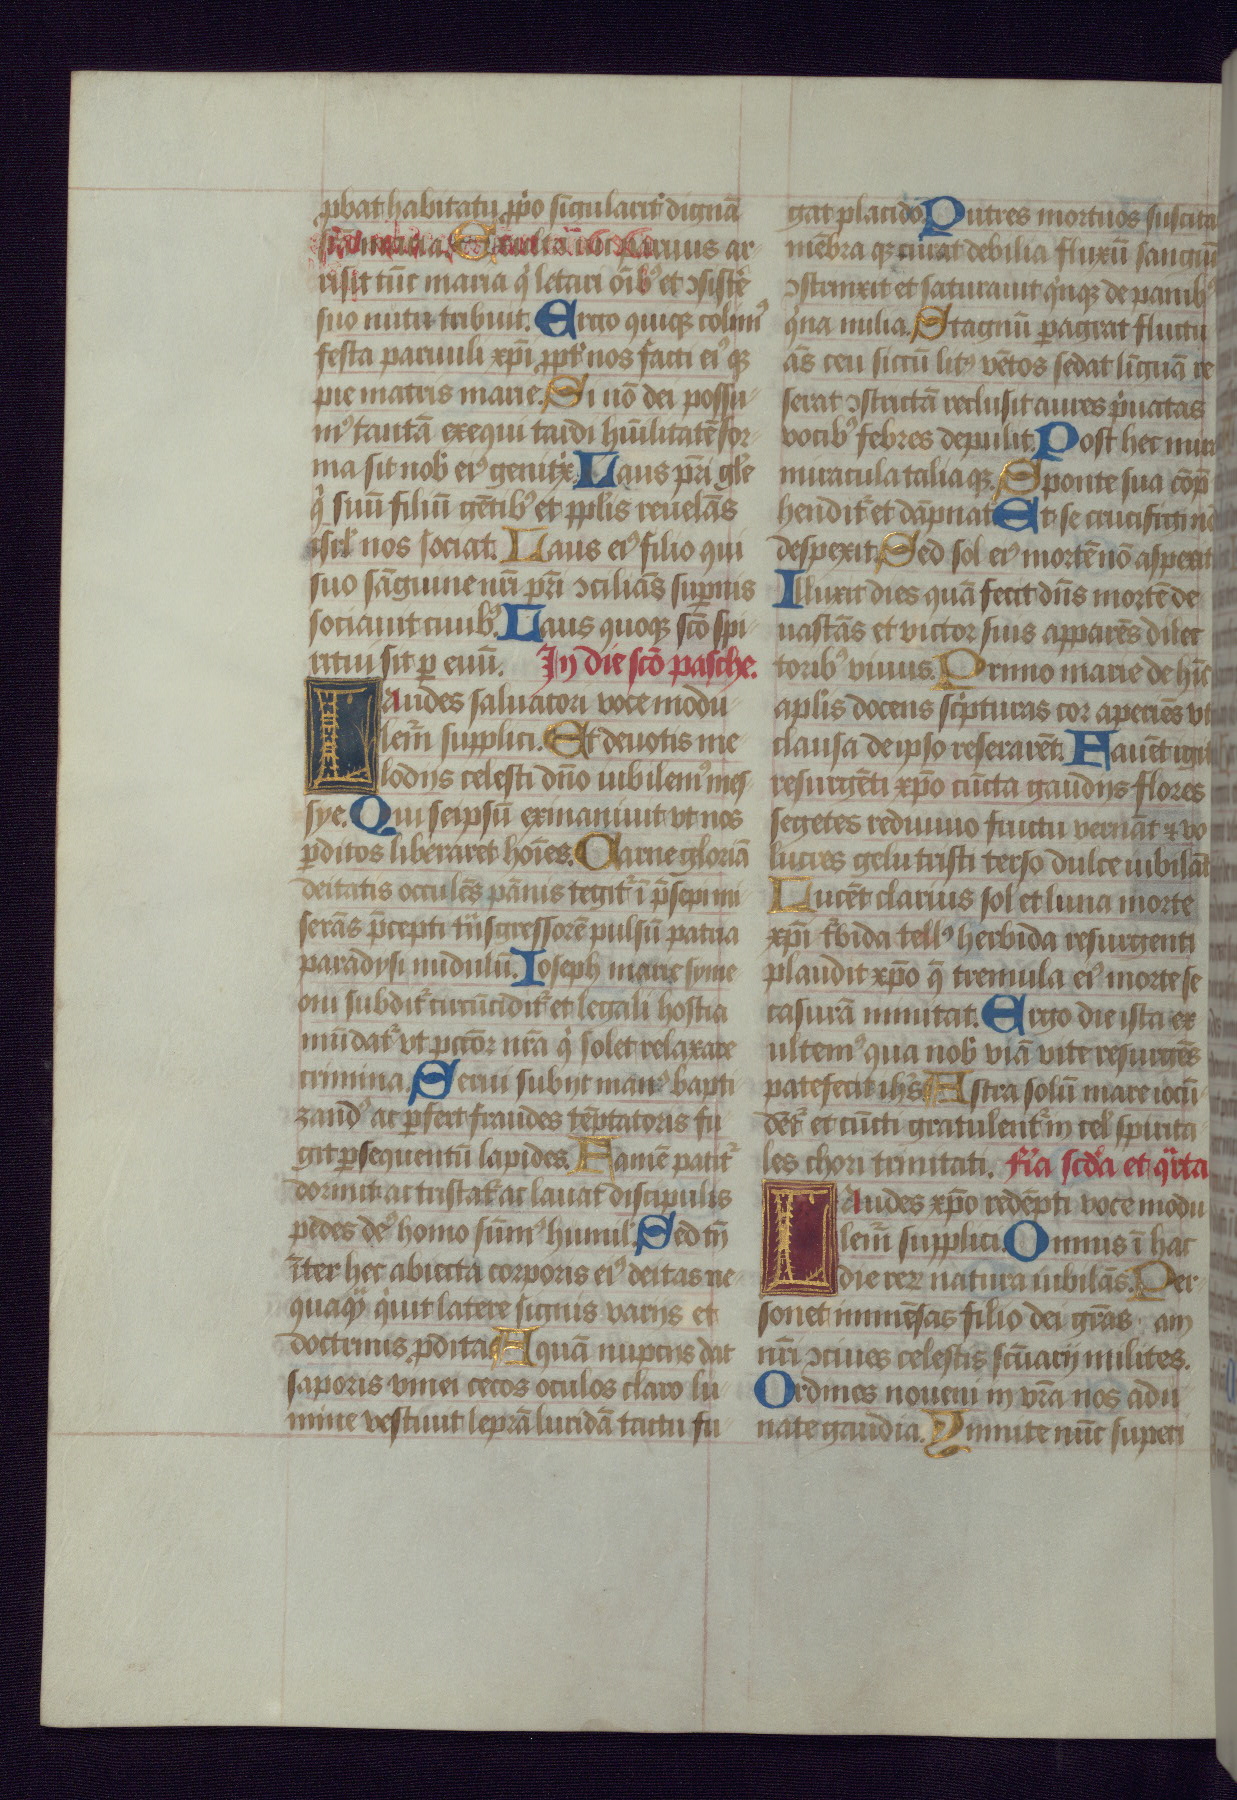 ꝓbat habitatu ꝓprio singularit᷑ dignā
sine macula. Cui parvus ar-
risit tūc maria q̍ letari oībꝰ et ↄsistē
suo nutu tribuit. Ergo quiqꝫ colimꝰ
festa parvuli xp̄i ꝓpt᷑ nos facti eiꝰqꝫ
pie matris marie. Si nō dei possu-
mꝰ tantā exequi tardi hūilitatē for-
ma sit nob̄ eiꝰ genitx̍. Laus pr̄i gl̄e
q̍ suū filiū gētibꝰ et ꝓplis revelās
isrl̄ nos sociat. Laus eiꝰ filio qui
suo sāguine nr̄i pr̄i ↄciliās suꝑnis
sociavit civibꝰ. Laus quoqꝫ sc̄o spi-
ritui sit ꝑ evū. In die sc̄o pasche.
Laudes salvatori voce modu-
lem᷑ supplici. Et devotis me-
lodijs celesti dn̄o iubilemꝰ mes-
sye. Qui seipsū exinanivit vt nos
ꝑditos liberaret hoīes. Carne gloriā
deitatis occulēs pānis tegit᷑ ī p̄sepi mi-
serās p̄cepti trāsgressorē pulsū patria
paradysi nudulū. Ioseph marie syme-
oni subdit᷑ circūcidit᷑ et legali hostia
mūdat᷑ vt pcc̄or nr̄a q̍ solet relaxare
crimina. Servi subijt manꝰ bapti-
zandꝰ ac ꝑfert fraudes tēptatoris fu-
git ꝑsequentū lapides. Famē patit᷑
dormit ac tristat᷑ ac lavat discipulis
pedes deꝰ homo sūmꝰ humil᷑. Sed tn̄
īter hec abiecta corporis eiꝰ deitas ne-
quaqͣꝫ q̍vit latere signis varijs et
doctrinis ꝓdita. Aquā nuptijs dat
saporis vinei cecos oculos claro lu-
mine vestivit leprā luridā tactu fu-
gat placido. Putres mortuos suscitat
mēbraqꝫ curat debilia fluxū sanguīs
ↄstrinxit et saturavit q̍nqꝫ de panibꝰ
q̍na milia. Stagnū ꝑagrat fluctu-
ās ceu siccū litꝰ vētos sedat līguā re-
serat ↄstrictā reclusit aures p̍vatas
vocibꝰ febres depulit. Post hec mira
miracula taliaqꝫ. Sponte sua cōp̄-
hendit᷑ et dāpnat᷑. Et se crucifigi nō
despexit. Sed sol eiꝰ mortē nō aspexit
Illuxit dies quā fecit dn̄s mortē de-
vastās et victor suis apparēs dilec-
toribꝰ vivus. Primo marie de hīc
aplis docens sc̍pturas cor aperiēs vt
clausa de ipso reserarēt. Favēt igit᷑
resurgēti xp̄o cūcta gaudijs flores
segetes redivivo fructu vernāt ⁊ vo-
lucres gelu tristi terso dulce iubilāt
Lucēt clarius sol et luna morte
xp̄i t᷑bida tellꝰ herbida resurgenti
plaudit xp̄o q̄ tremula eiꝰ morte se
casurā minitat. Ergo die ista ex-
ultemꝰ qua nob̄ viā vite resurgēs
patefecit ih̄s. Astra solū mare iocū-
dēt᷑ et cūcti gratulent᷑ in cel᷑ spirita-
les chori trinitati. Fr̄ia scd̄a et q̍rta
Laudes xp̄o redēpti voce modu-
lem᷑ supplici. Omnis ī hac
die reꝝ natura iubilās. Per-
sonet immēsas filio dei grās. am
nr̄i ↄcives celestis sc̄uarij milites.
Ordines noveni in vr̄a nos adu-
nate gaudia. Ymnite nūc superi